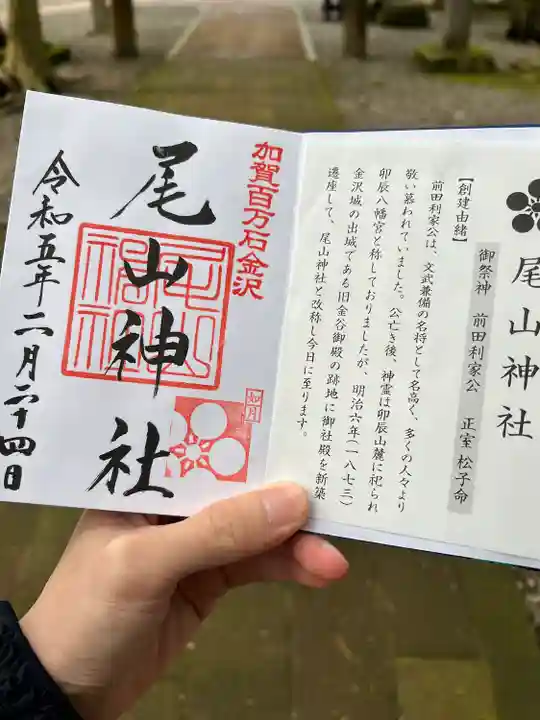 尾山神社
御祭神 前田利家公 正室 松子命
【創建由緒】
前田利家公は、文武兼備の名将として名高く、多くの人々より
敬い慕われていました。公亡き後、神霊は卯辰山麓に祀られ
卯辰八幡宮と称しておりましたが、明治六年(一八七三)
金沢城の出城である旧金谷御殿の跡地に御社殿を新築
遷座して、尾山神社と改称し今日に至ります。
加賀百万石金沢
尾山神社
如月
令和五年二月二十四日